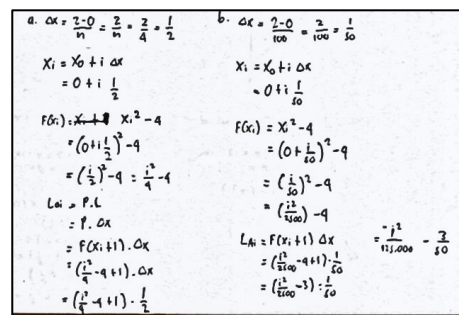 a. Δx = 2-0/n = 2/n = 2/4 = 1/2
Xi = X0 + i Δx
= 0 + i 1/2
F(xi) = Xi² - 4
= (0 + i 1/2)² - 4
= (i/2)² - 4 = i²/4 - 4
Lai = P.L
= P. Δx
= F(xi+1). Δx
= (i²/4 - 4 + 1). Δx
= (i²/4 - 4 + 1) · 1/2
b. Δx = 2-0/100 = 2/100 = 1/50
Xi = X0 + i Δx
= 0 + i 1/50
F(xi) = Xi² - 4
= (0 + i 1/50)² - 4
= (i/50)² - 4
= (i²/2500) - 4
LAi = F(xi+1) Δx
= (i²/2500 - 4 + 1) · 1/50
= (i²/2500 - 3) · 1/50
= i²/125.000 - 3/50